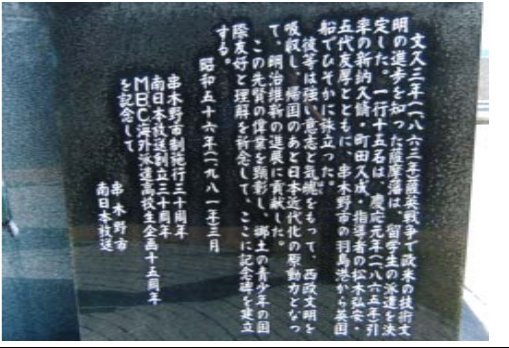 文久三年(一八六三年)薩英戦争で欧米の技術文
明の進歩を知った薩摩藩は、留学生の派遣を決
定した。一行十五名は、慶応元年(一八六五年)引
率の新納久脩・町田久成・指導者の松木弘安・
五代友厚とともに、串木野市の羽島港から英国
船でひそかに旅立った。
彼等は強い意志と気魄をもって、西欧文明を
吸収し、帰国のあと日本近代化の原動力となっ
て、明治維新の進展に貢献した。
この先賢の偉業を顕彰し、郷土の青少年の国
際友好と理解を祈念して、ここに記念碑を建立
する。
昭和五十六年(一九八一年)三月
串木野市制施行三十周年
南日本放送創立三十周年
MBC海外派遣高校生企画十五周年
を記念して
串木野市
南日本放送